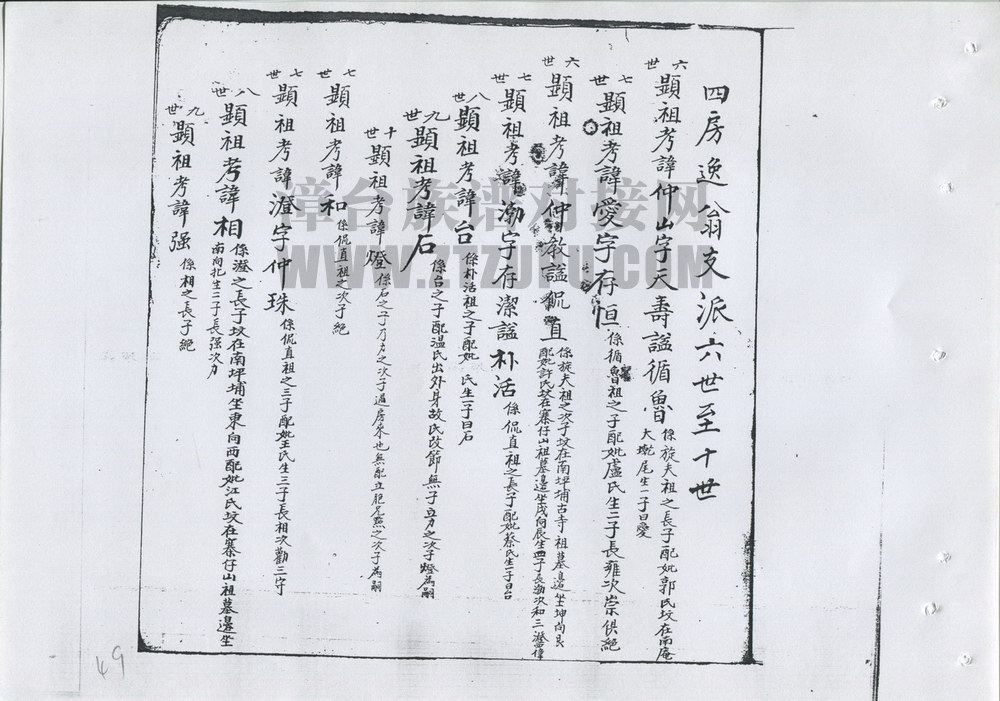 四房逸翁支派六世至十世
六世 顯祖考諱仲山字天壽謚循魯 係旋夫祖之長子配妣郭氏坟在南庵
大墘尾生一子曰愛
七世 顯祖考諱愛字存恒 係循魯祖之子配妣盧氏生二子長雍次崇俱絕
六世 顯祖考諱仲敘謚侃直 係旋夫祖之次子坟在南坪埔古寺祖墓邊坐坤向艮
配妣許氏坟在寨仔山祖墓邊坐戌向辰生四子長渤次和三澄四偉
七世 顯祖考諱渤字存潔謚朴活 係侃直祖之長子配妣蔡氏生一子曰台
八世 顯祖考諱台 係朴活祖之子配妣 氏生一子曰石
九世 顯祖考諱石 係台之子配温氏出外身故氏改節無子立力之次子燈為嗣
十世 顯祖考諱燈 係石之子乃力之次子過房來也無配立胞兄 之次子為嗣
七世 顯祖考諱和 係侃直祖之次子絕
七世 顯祖考諱澄字仲珠 係侃直祖之三子配妣王氏生三子長相次勸三守
八世 顯祖考諱相 係澄之長子坟在南坪埔坐東向西配妣江氏坟在寨仔山祖墓邊坐
南向北生二子長强次力
九世 顯祖考諱强 係相之長子絕
漳台族谱对接网
WWW.ZTZUPU.COM
49